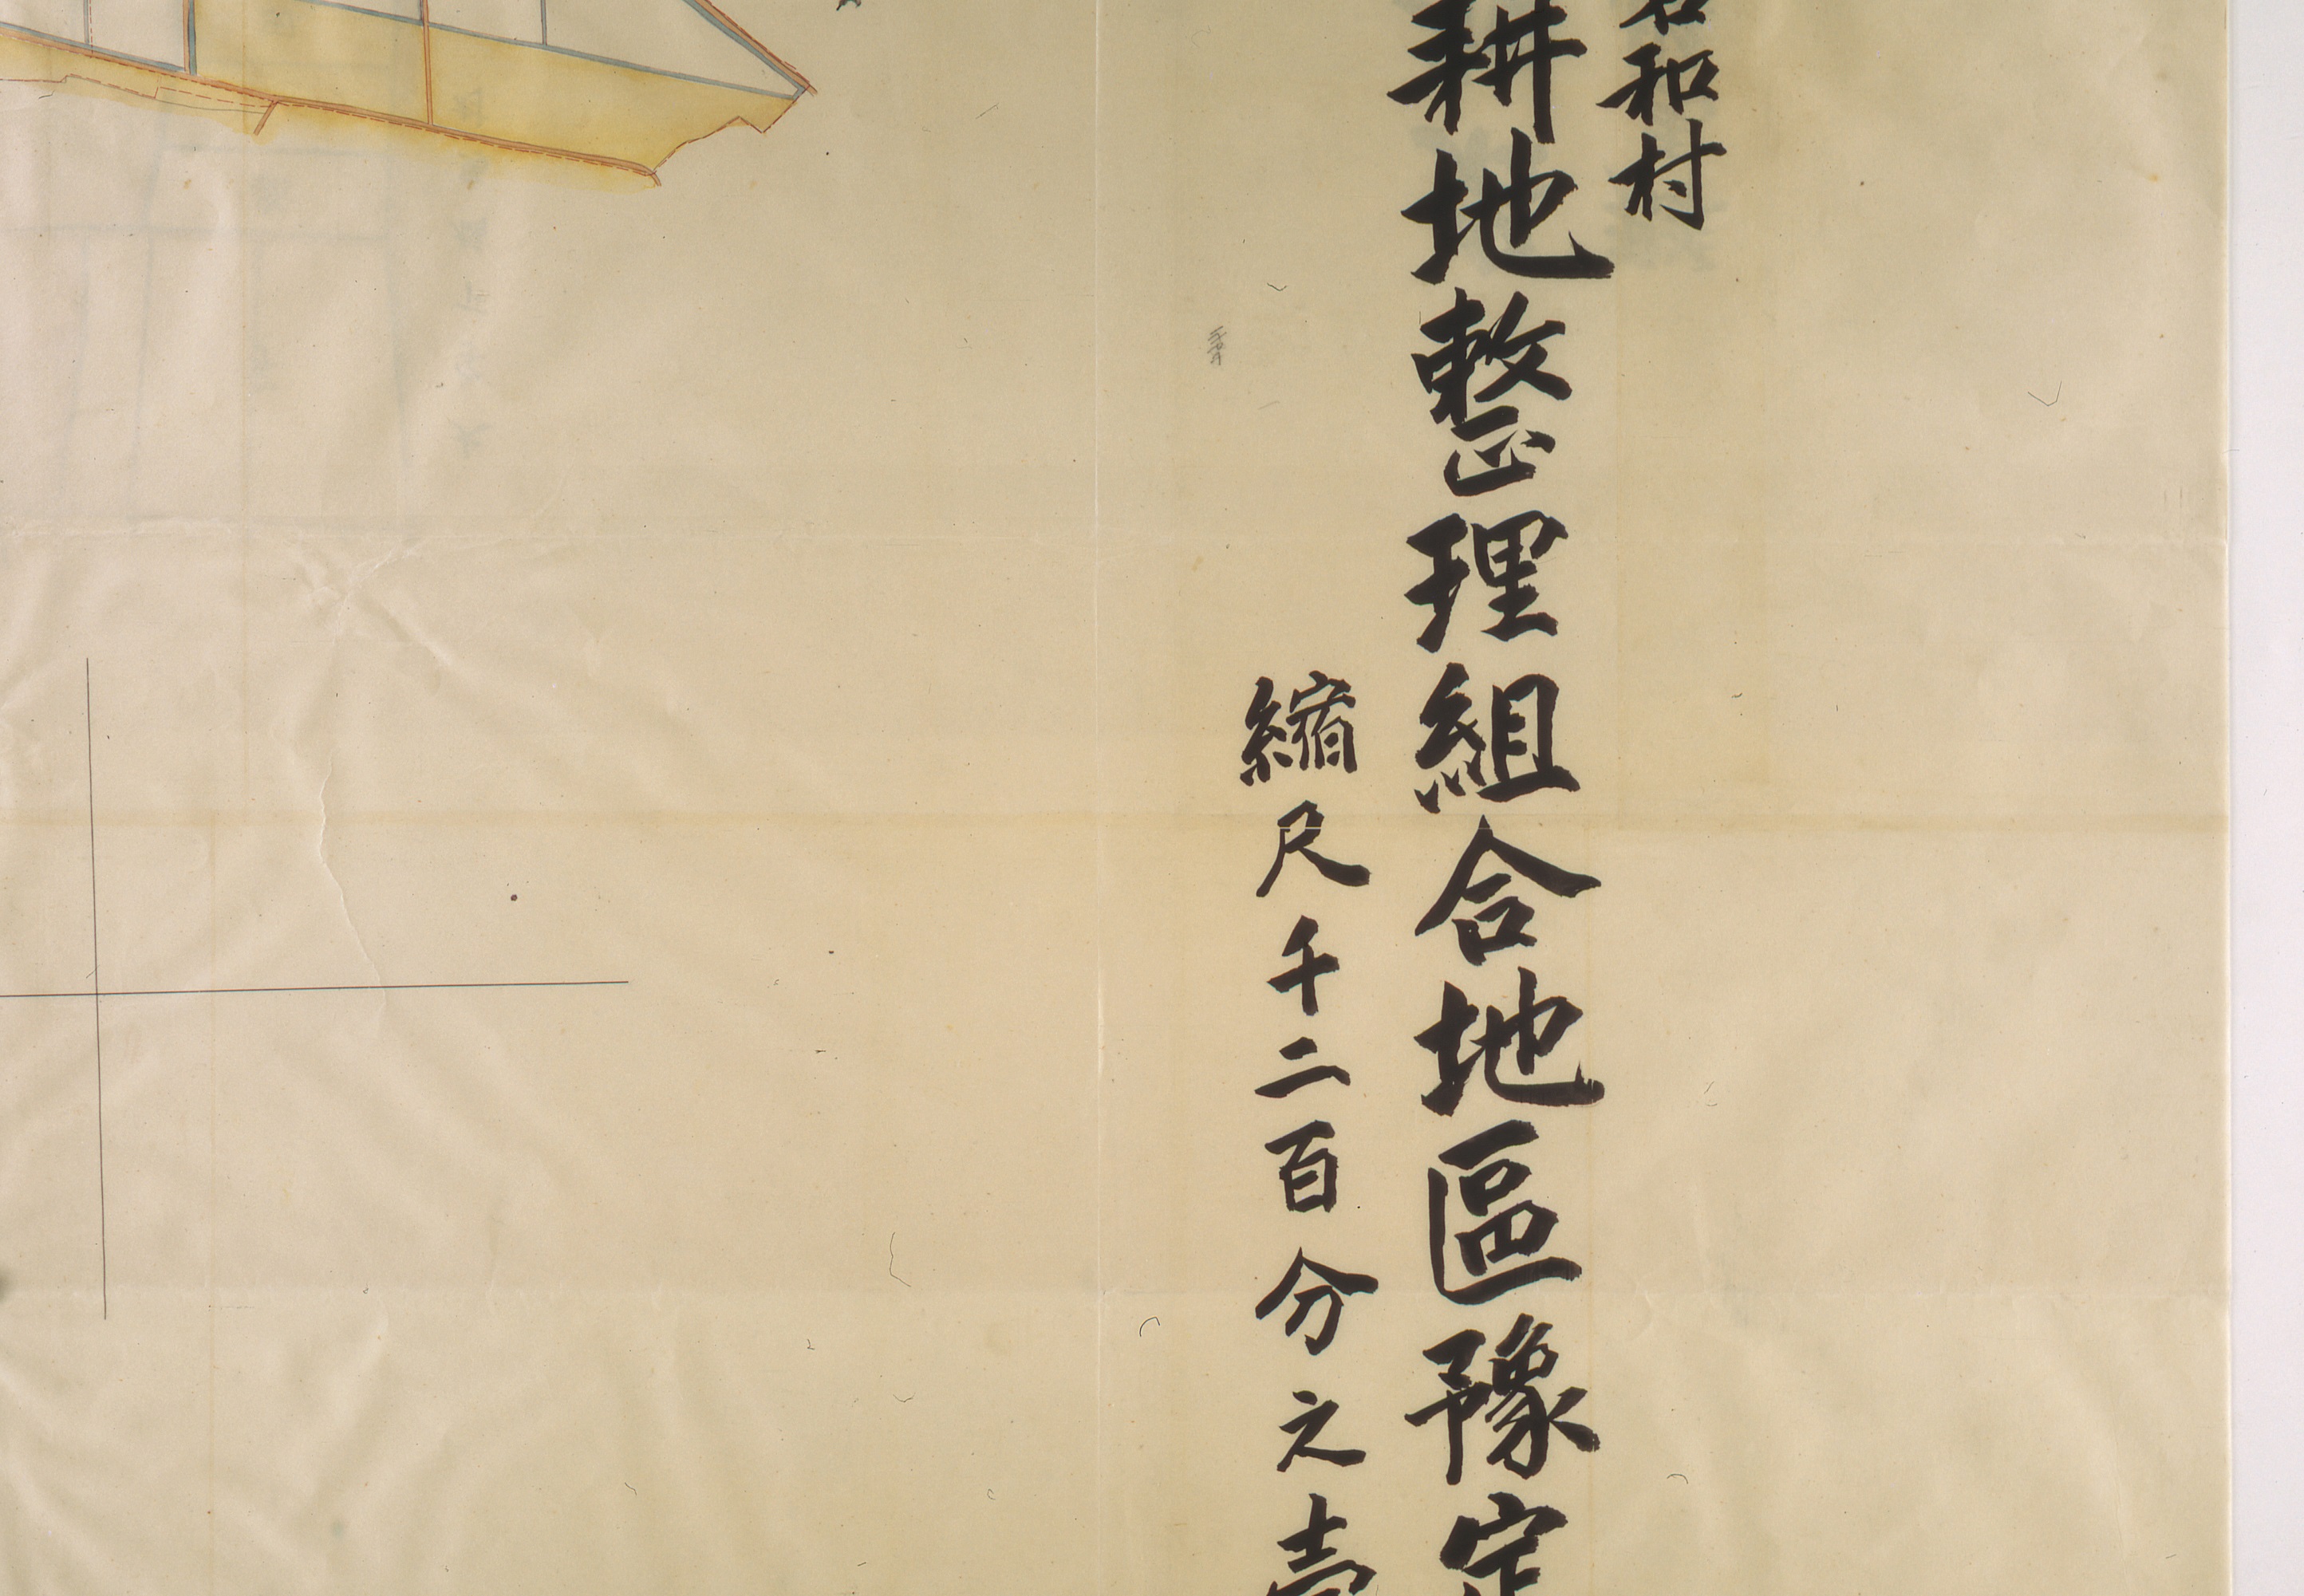 和村
耕地整理組合地區豫定
縮尺千二百分之壹